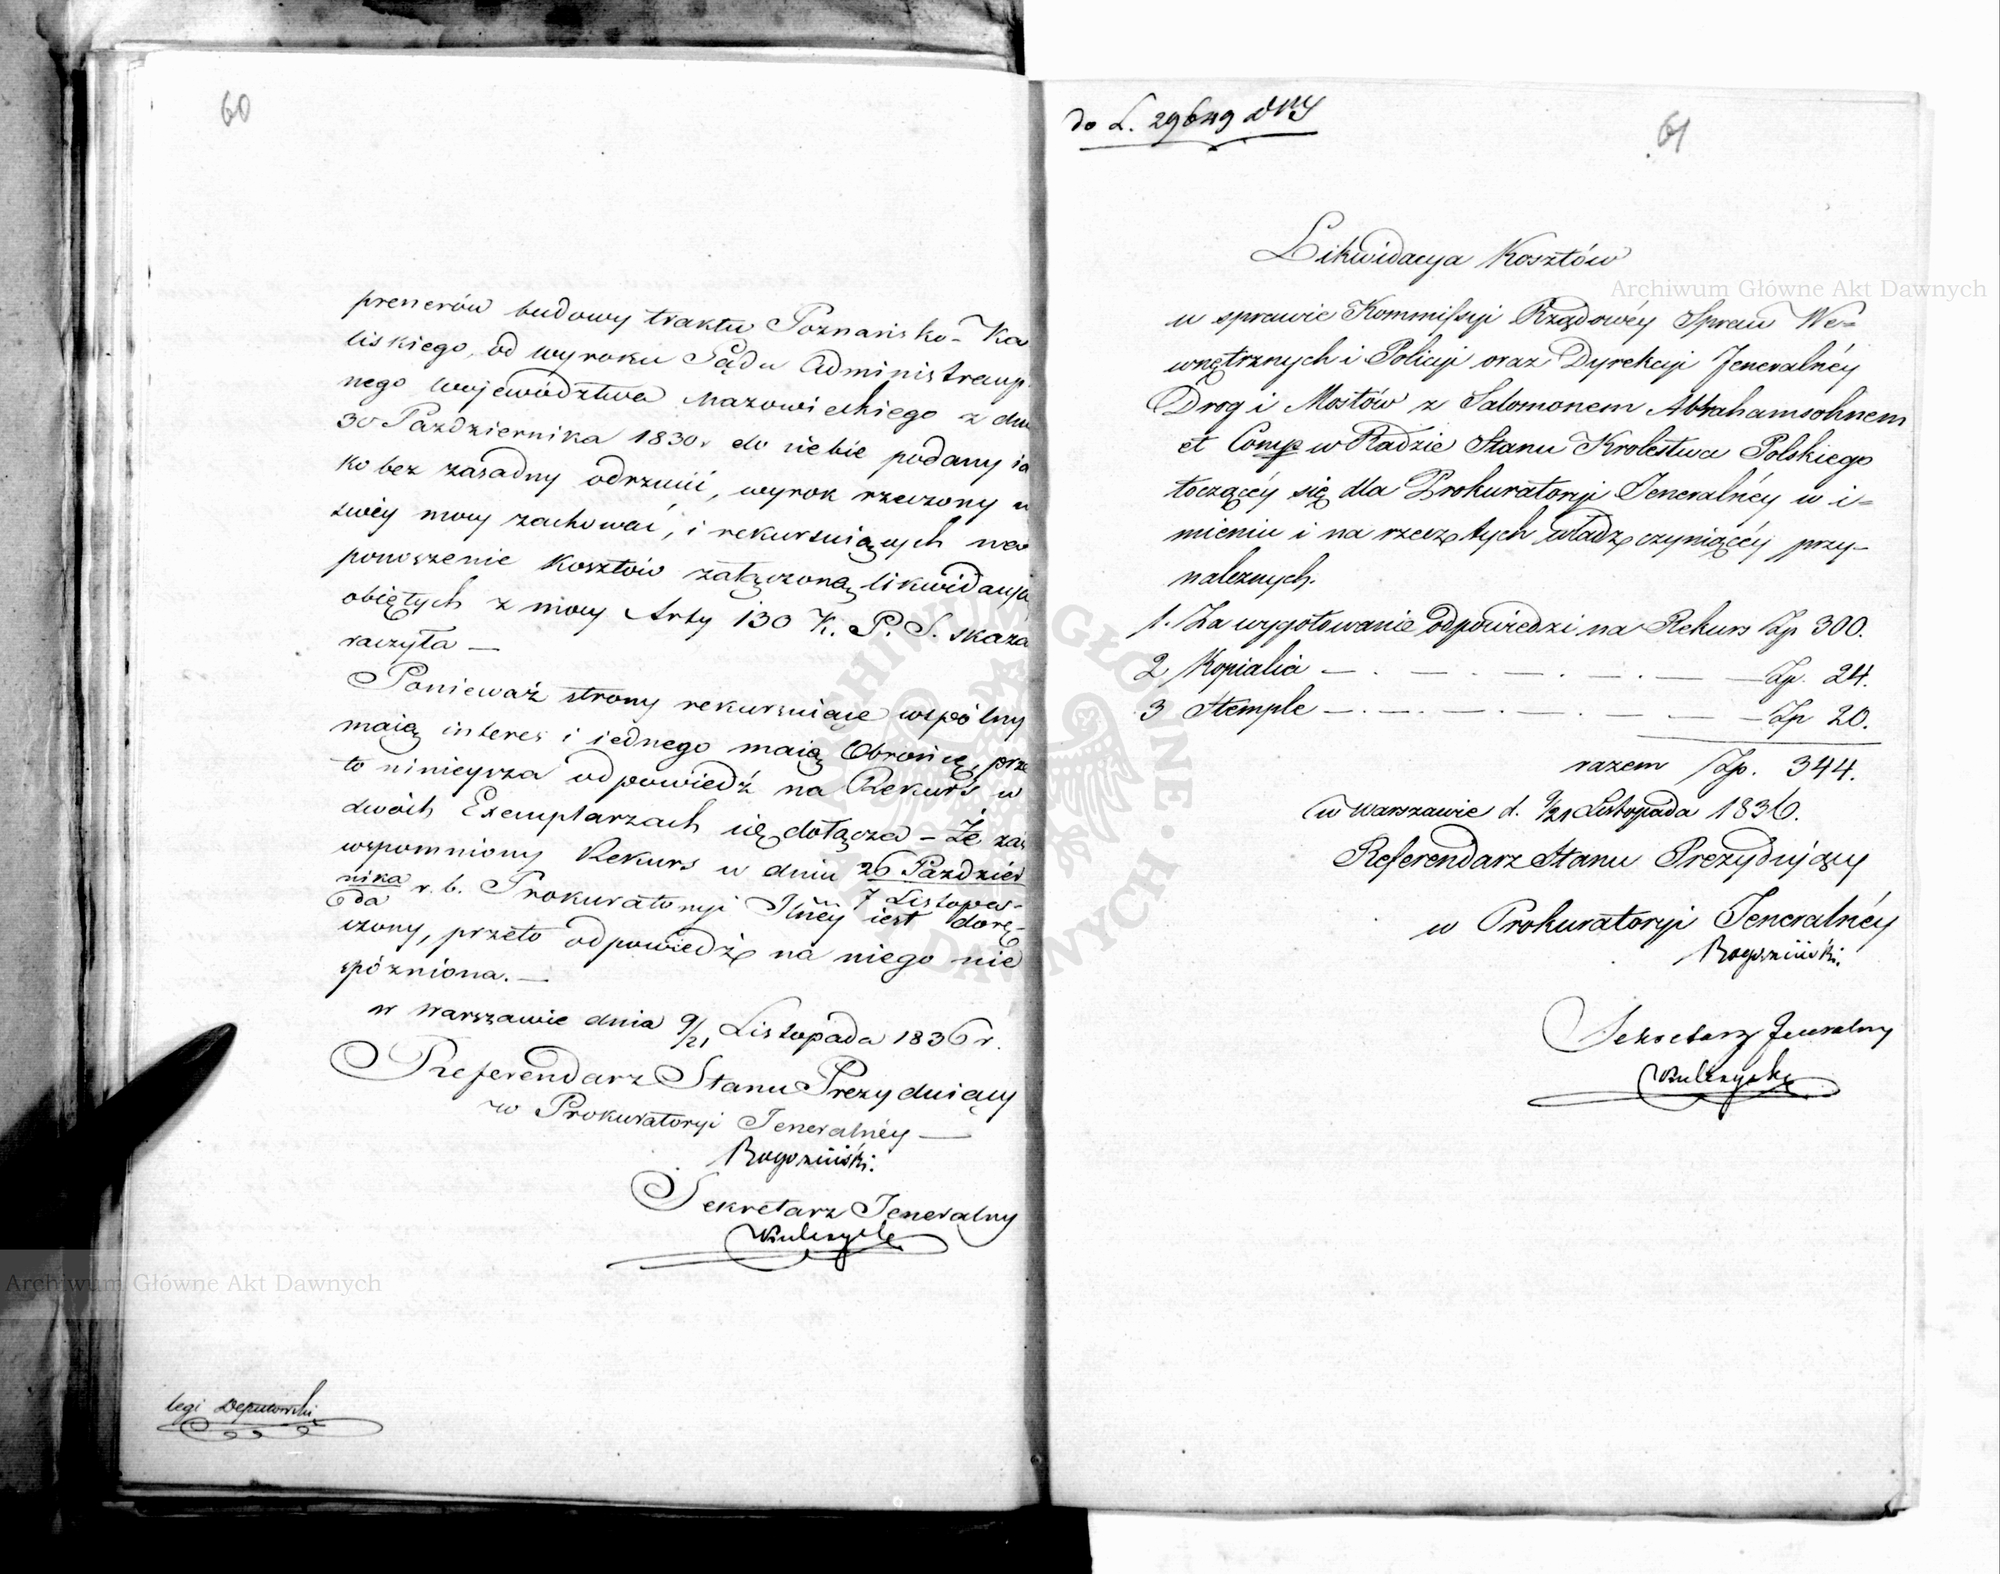 60
prenerów budowy traktu Poznańsko-Ka
liskiego, od wyroku Sądu Administracyi
nego Województwa Mazowieckiego z dnia
30 Października 1830 r do siebie podany ia
ko bez zasadny odrzucić, wyrok rzeczony w
swéy mocy zachować, i rekursuiących na
ponoszenie kosztów załączoną likwidacją
obiętych z mocy Arty 130 K. P. S. skazać
raczyła —
Ponieważ strony rekursuiące wspólny
maią interes i iednego maią Obrońcę, prze
to ninieysza odpowiedź na Rekurs w
dwóch Exemplarzach się dołącza — Że zaś
wspomniony Rekurs w dniu 26 Paździer
nika r. b. Prokuratoryi Jlnéy 7 Listopa-
da iest dorę-
czony, przeto odpowiedź na niego nie
spóźniona. —
w Warszawie dnia 9/21 Listopada 1836 r.
Referendarz Stanu Prezyduiący
w Prokuratoryi Jeneralnéy —
Rogoziński.
Sekretarz Jeneralny
legi Deputowski
do L. 29649
61
Likwidacya Kosztów
w sprawie Kommissyi Rządowéy Spraw We=
wnętrznych i Policyi oraz Dyrekcyi Jeneralnéy
Dróg i Mostów z Salomonem Abrahamsohnem
et Comp w Radzie Stanu Krolestwa Polskiego
toczącéy się dla Prokuratoryi Jeneralnéy w i=
mieniu i na rzecz tych władz czyniącéy przy-
należnych.
1. Za wygotowanie odpowiedzi na Rekurs Zp 300.
2, Kopialia — . — . — . — . — — Zp. 24.
3 Stemple — . — . — . — . — — — Zp 20.
razem Zp. 344.
w Warszawie d. 9/21 Listopada 1836.
Referendarz Stanu Prezydujący
w Prokuratoryi Jeneralnéy
Rogoziński.
Sekretarz Jeneralny
Archiwum Główne Akt Dawnych
Archiwum Główne Akt Dawnych
ARCHIWUM GŁÓWNE AKT DAWNYCH